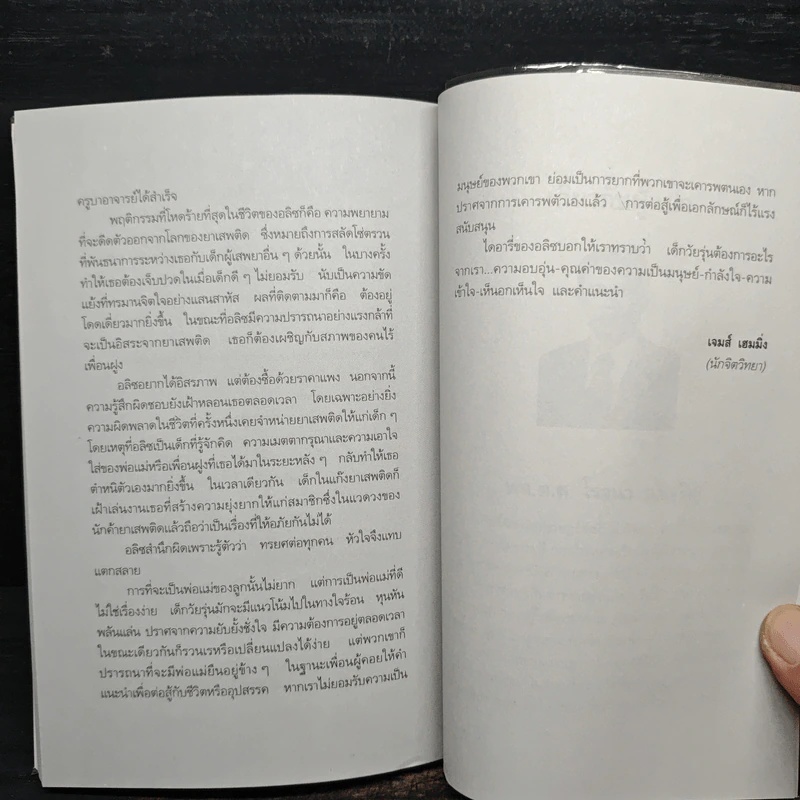 ครูบาอาจารย์ได้สำเร็จ
พฤติกรรมที่โหดร้ายที่สุดในชีวิตของอลิซก็คือ ความพยายาม
ที่จะดีดตัวออกจากโลกของยาเสพติด ซึ่งหมายถึงการสลัดโซ่ตรวน
ที่พันธนาการระหว่างเธอกับเด็กผู้เสพยาอื่น ๆ ด้วยนั้น ในบางครั้ง
ทำให้เธอต้องเจ็บปวดในเมื่อเด็กดี ๆ ไม่ยอมรับ นับเป็นความขัด
แย้งที่ทรมานจิตใจอย่างแสนสาหัส ผลที่ติดตามมาก็คือ ต้องอยู่
โดดเดี่ยวมากยิ่งขึ้น ในขณะที่อลิซมีความปรารถนาอย่างแรงกล้าที่
จะเป็นอิสระจากยาเสพติด เธอก็ต้องเผชิญกับสภาพของคนไร้
เพื่อนฝูง
อลิซอยากได้อิสรภาพ แต่ต้องซื้อด้วยราคาแพง นอกจากนี้
ความรู้สึกผิดชอบยังเฝ้าหลอนเธอตลอดเวลา โดยเฉพาะอย่างยิ่ง
ความผิดพลาดในชีวิตที่ครั้งหนึ่งเคยจำหน่ายยาเสพติดให้แก่เด็ก ๆ
โดยเหตุที่อลิซเป็นเด็กที่รู้จักคิด ความเมตตากรุณาและความเอาใจ
ใส่ของพ่อแม่หรือเพื่อนฝูงที่เธอได้มาในระยะหลัง ๆ กลับทำให้เธอ
ตำหนิตัวเองมากยิ่งขึ้น ในเวลาเดียวกัน เด็กในแก๊งยาเสพติดก็
เฝ้าเล่นงานเธอที่สร้างความยุ่งยากให้แก่สมาชิกซึ่งในแวดวงของ
นักค้ายาเสพติดแล้วถือว่าเป็นเรื่องที่ให้อภัยกันไม่ได้
อลิซสำนึกผิดเพราะรู้ตัวว่า ทรยศต่อทุกคน หัวใจจึงแทบ
แตกสลาย
การที่จะเป็นพ่อแม่ของลูกนั้นไม่ยาก แต่การเป็นพ่อแม่ที่ดี
ไม่ใช่เรื่องง่าย เด็กวัยรุ่นมักจะมีแนวโน้มไปในทางใจร้อน หุนหัน
พลันแล่น ปราศจากความยับยั้งชั่งใจ มีความต้องการอยู่ตลอดเวลา
ในขณะเดียวกันก็รวนเรหรือเปลี่ยนแปลงได้ง่าย แต่พวกเขาก็
ปรารถนาที่จะมีพ่อแม่ยืนอยู่ข้าง ๆ ในฐานะเพื่อนผู้คอยให้คำ
แนะนำเพื่อต่อสู้กับชีวิตหรืออุปสรรค หากเราไม่ยอมรับความเป็น
มนุษย์ของพวกเขา ย่อมเป็นการยากที่พวกเขาจะเคารพตนเอง หาก
ปราศจากการเคารพตัวเองแล้ว การต่อสู้เพื่อเอกลักษณ์ก็ไร้แรง
สนับสนุน
ไดอารี่ของอลิซบอกให้เราทราบว่า เด็กวัยรุ่นต้องการอะไร
จากเรา...ความอบอุ่น-คุณค่าของความเป็นมนุษย์-กำลังใจ-ความ
เข้าใจ-เห็นอกเห็นใจ และคำแนะนำ
เจมส์ เฮมมิ่ง
(นักจิตวิทยา)